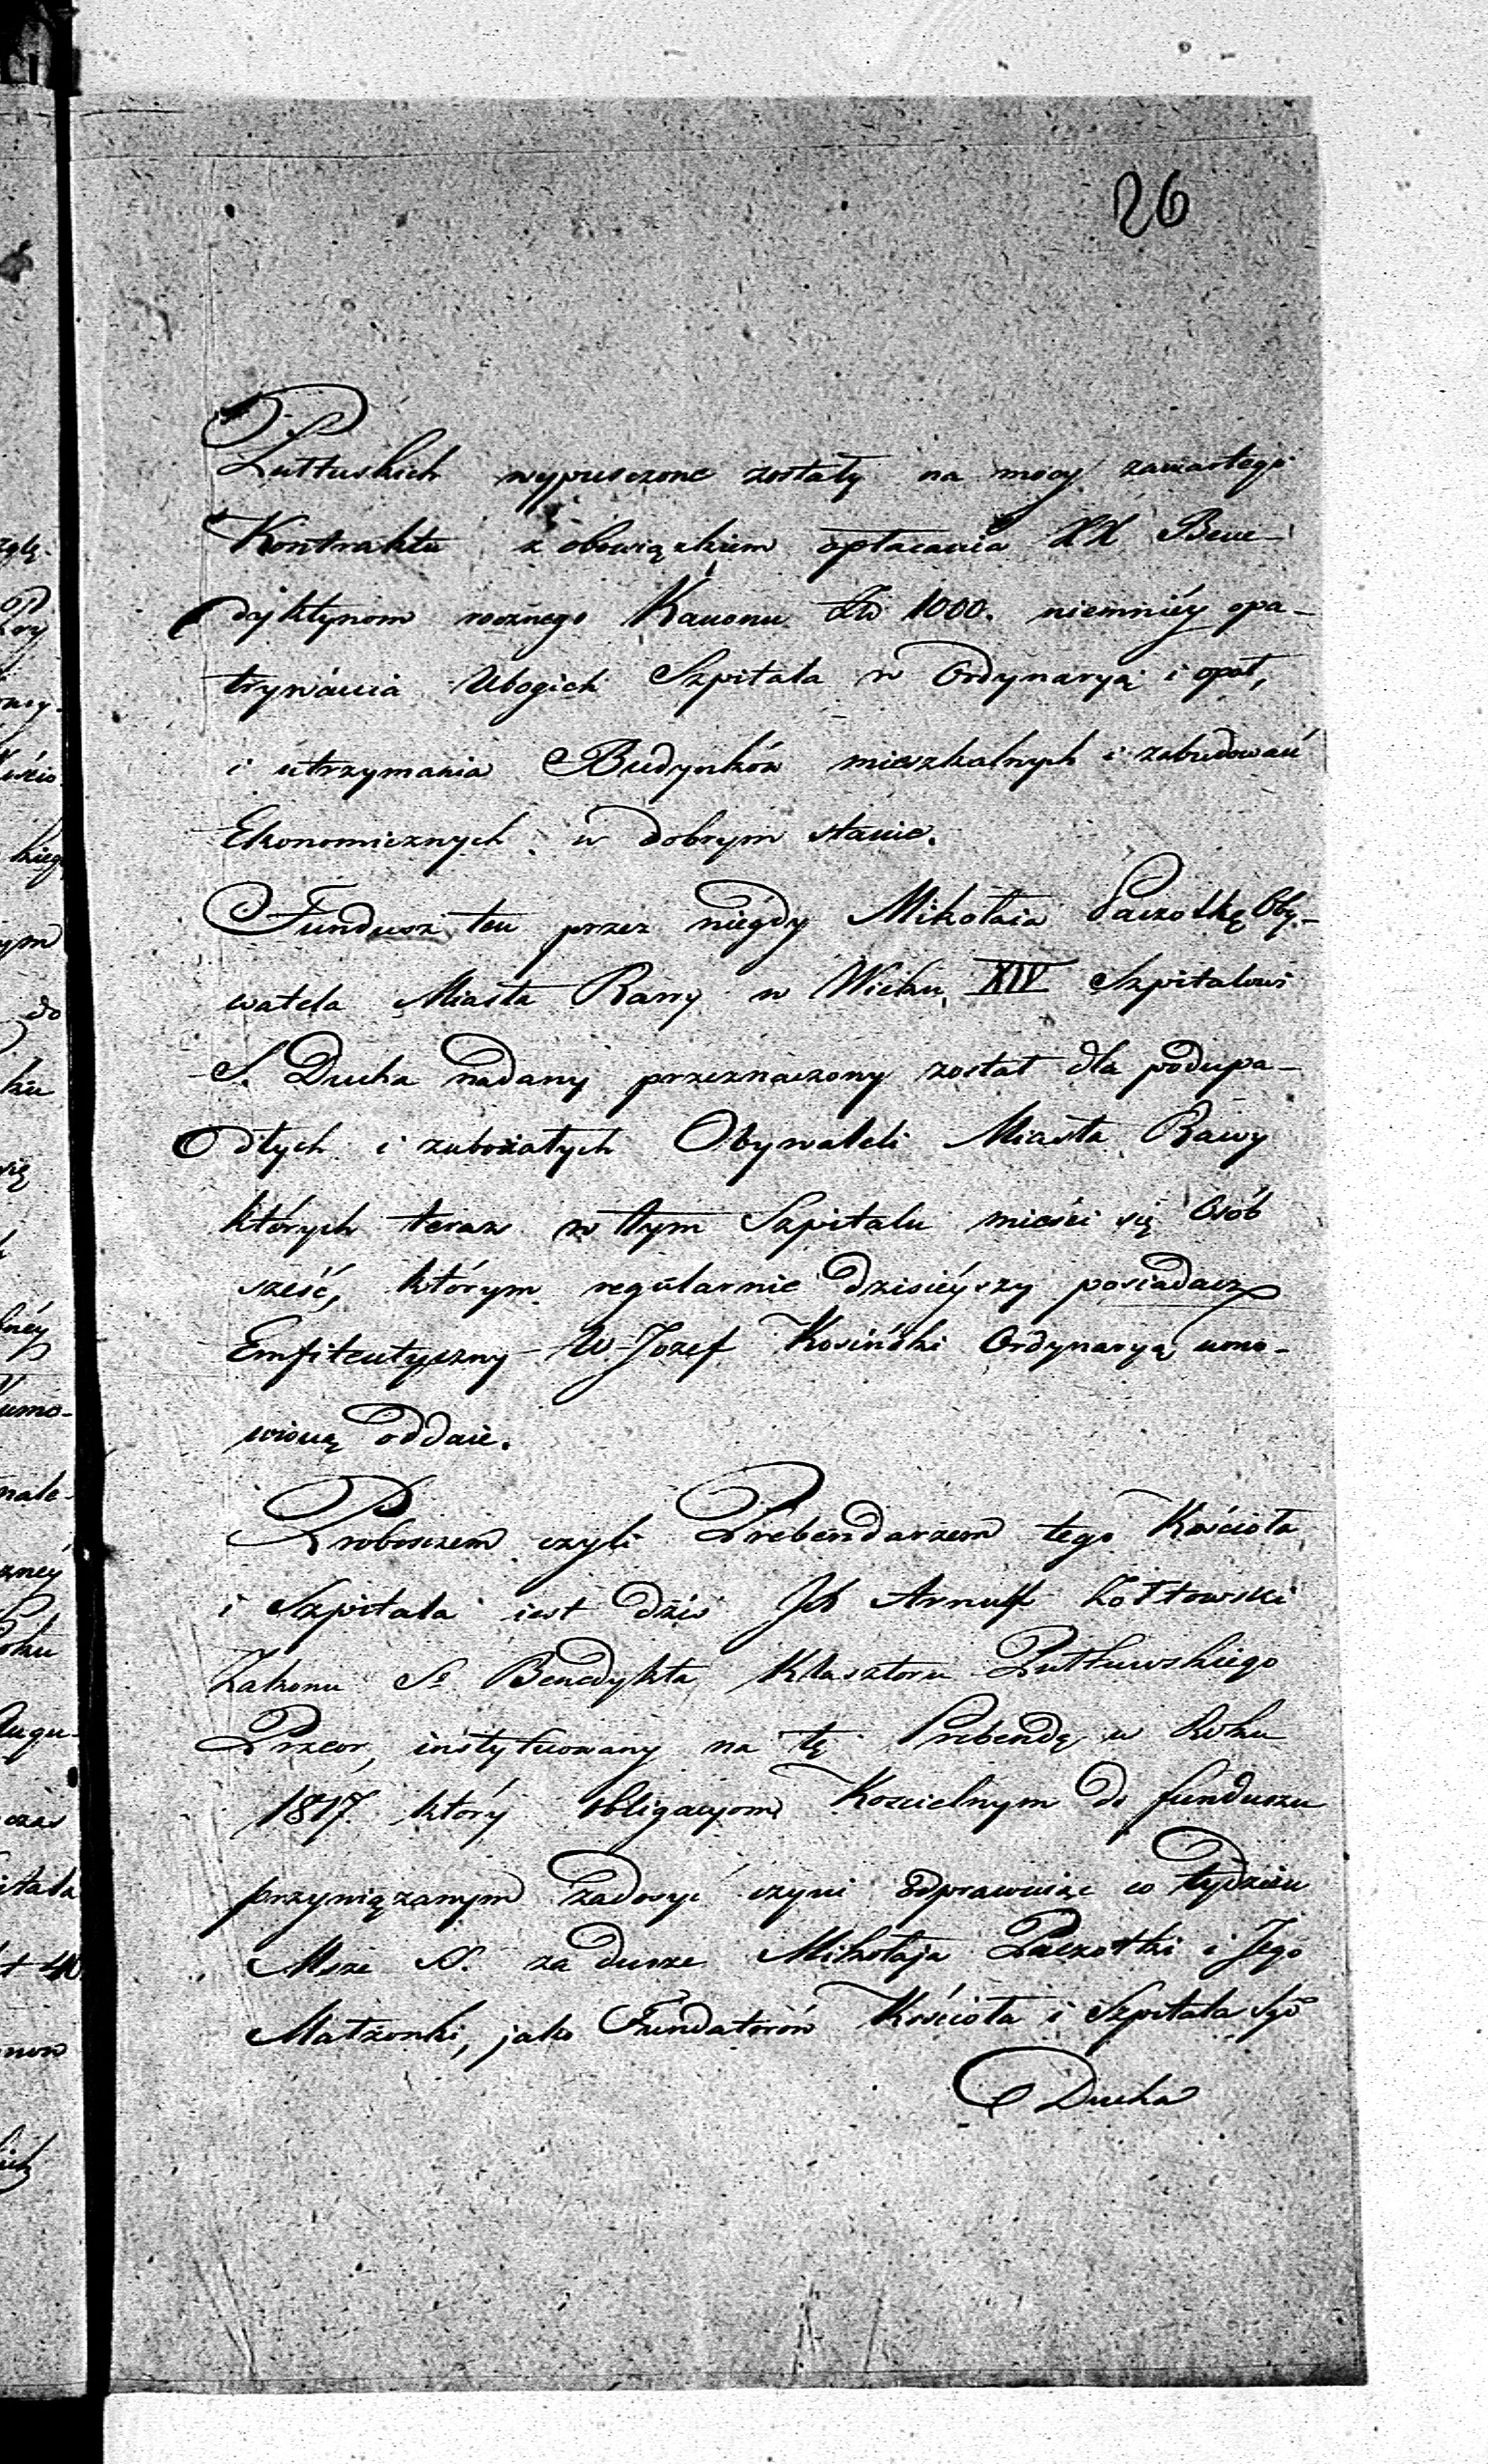 26
Pułtuskich wypuszczone zostały na mocy zawartego
Kontraktu z obowiązkiem opłacania XX Bene-
dyktynom rocznego Kanonu Zł 1000. niemniéy opa-
trywania Ubogich Szpitala w Ordynaryą i opał,
i utrzymania Budynków mieszkalnych i zabudowań
Ekonomicznych w dobrym stanie.
Fundusz ten przez niégdy Mikołaia Paczołkę Oby-
watela Miasta Rawy w Wieku XIV Szpitalowi
S. Ducha nadany przeznaczony został dla podupa-
dłych i zubożałych Obywateli Miasta Rawy
których teraz w tym Szpitalu mieści się Osób
sześć, którym regularnie dzisiéyszy posiadacz
Emfiteutyczny W Jozef Kosiński Ordynaryą umo-
wioną oddaie.
Proboszczem czyli Prebendarzem tego Kościoła
i Szpitala iest dziś Arnulf Żołtowski
Zakonu Sº Benedykta Klasztoru Pułtuwskiego
Przeor, instytuowany na tę Prebendę w Roku
1817. który obligacyom Koscielnym do funduszu
przywiązanym zadosyć czyni odprawuiąc co tydzień
Msze S. za dusze Mikołaja Paczołki i Jego
Małżonki, jako Fundatorów Kościoła i Szpitala Sgo
Ducha